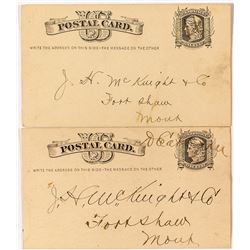 POSTAL CARD.
WRITE THE ADDRESS ON THIS SIDE - THE MESSAGE ON THE OTHER.
J. H. McKnight & Co
Fort Shaw
Mont
POSTAL CARD.
WRITE THE ADDRESS ON THIS SIDE - THE MESSAGE ON THE OTHER.
J. H. McKnight & Co
Fort Shaw
Mont